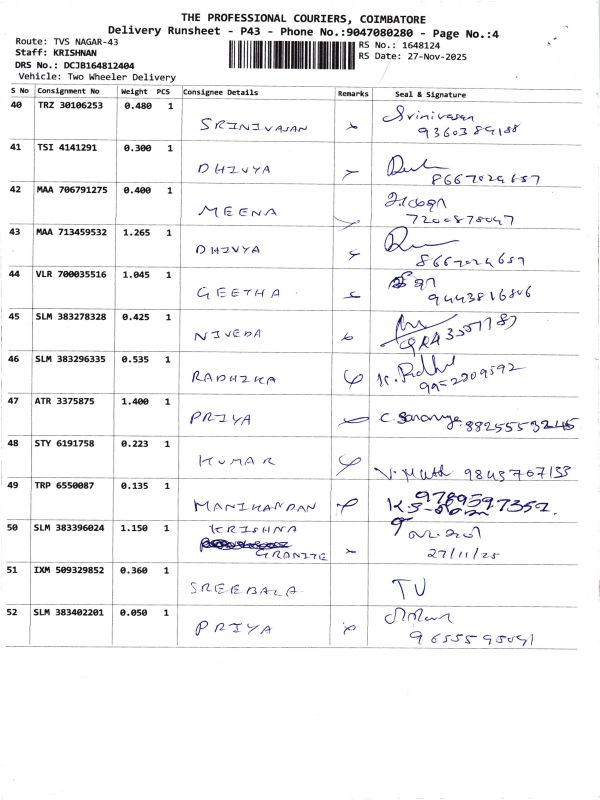 THE PROFESSIONAL COURIERS, COIMBATORE
Delivery Runsheet - P43 - Phone No.:9047080280 - Page No.:4
Route: TVS NAGAR-43
RS No.: 1648124
Staff: KRISHNAN
RS Date: 27-Nov-2025
DRS No.: DCJB164812404
Vehicle: Two Wheeler Delivery
S No Consignment No Weight PCS Consignee Details Remarks Seal & Signature
40 TRZ 30106253 0.480 1
SRINIVASAN
Srinivasan
41 TSI 4141291 0.300 1
DHIVYA
8667024687
42 MAA 706791275 0.400 1
MEENA
43 MAA 713459532 1.265 1
DHIVYA
8667024687
44 VLR 700035516 1.045 1
GEETHA
9443816806
45 SLM 383278328 0.425 1
NIVEDA
46 SLM 383296335 0.535 1
RADHIKA
9952209592
47 ATR 3375875 1.400 1
PRIYA
C. Saranya
48 STY 6191758 0.223 1
KUMAR
9843707133
49 TRP 6550087 0.135 1
MANIKANDAN
9789597352
50 SLM 383396024 1.150 1
KRISHNA
GRANITE
27/11/25
51 IXM 509329852 0.360 1
SREEBALA
TV
52 SLM 383402201 0.050 1
PRIYA
9655595091